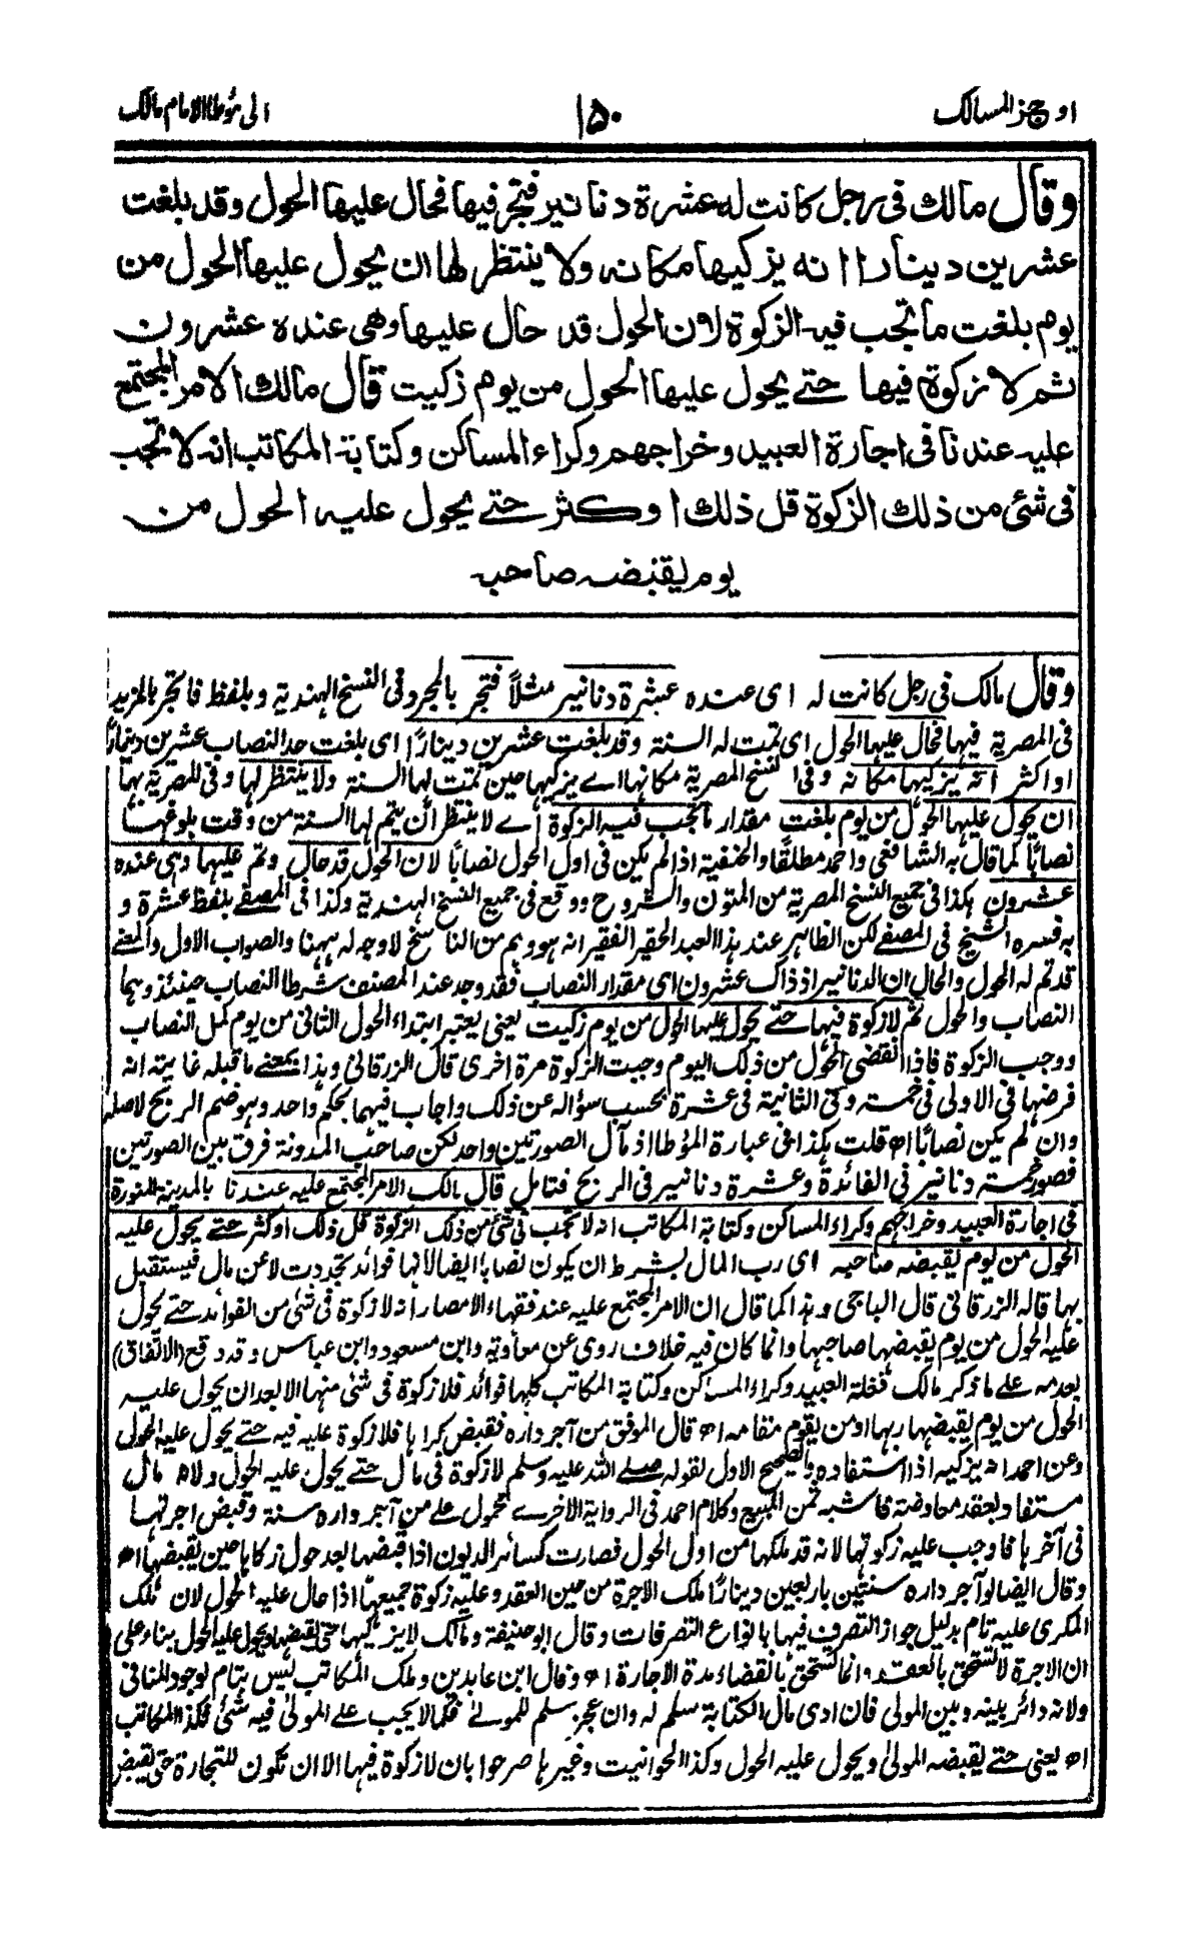 اوجز المسالك
١٥٠
الى مؤطا الامام مالك
وقال مالك فى رجل كانت له عشرة دنانير فتجر فيها فحال عليها الحول وقد بلغت
عشرين دينارا انه يزكيها مكانه ولا ينتظر لها ان يحول عليها الحول من
يوم بلغت ما تجب فيه الزكوة لان الحول قد حال عليها وهى عنده عشرون
ثم لا زكوة فيها حتے يحول عليها الحول من يوم زكيت قال مالك الامر المجتمع
عليه عندنا فى اجارة العبيد وخراجهم وكراء المساكن وكتابة المكاتب انه لا تجب
فى شئ من ذلك الزكوة قل ذلك او كثر حتے يحول عليه الحول من
يوم يقبضه صاحبه
وقال مالك فى رجل كانت له اى عنده عشرة دنانير مثلاً فتجر بالمجرد فى النسخ الهندية وبلفظ فاتجر بالمزيد
فى المصرية فيها فحال عليها الحول اى تمت له السنة وقد بلغت عشرين دينارًا اى بلغت حد النصاب عشرين دينارًا
او اكثر انه يزكيها مكانه وفى النسخ المصرية مكانها اے يزكيها حين تمت لها السنة ولا ينتظر لها وفى المصرية بها
ان يحول عليها الحول من يوم بلغت مقدار ما تجب فيه الزكوة اے لا ينتظر ان يتم لها السنة من وقت بلوغها
نصابًا كما قال به الشافعى واحمد مطلقًا والحنفية اذا لم يكن فى اول الحول نصابًا لان الحول قد حال وتم عليها وهى عنده
عشرون هكذا فى جميع النسخ المصرية من المتون والشروح ووقع فى جميع النسخ الهندية وكذا فى المصفے بلفظ عشرة و
به فسره الشيخ فى المصفے لكن الظاهر عند هذا العبد الحقير الفقير انه هو وهم من الناسخ لا وجه له ههنا والصواب الاول والمعنے
قد تم له الحول والحال ان الدنانير اذ ذاك عشرون اى مقدار النصاب فقد وجد عند المصنف شرطا النصاب حينئذ وهما
النصاب والحول ثم لا زكوة فيها حتے يحول عليها الحول من يوم زكيت يعنى يعتبر ابتداء الحول الثانى من يوم كمل النصاب
ووجب الزكوة فاذا انقضى الحول من ذلك اليوم وجبت الزكوة مرة اخرى قال الزرقانى وهذا بمعنے ما قبله غايته انه
فرضها فى الاولى فى خمسة وفى الثانية فى عشرة بحسب سؤاله عن ذلك واجاب فيهما بحكم واحد وهو ضم الربح لاصله
وان لم يكن نصابًا اھ قلت هكذا فى عبارة المؤطا اذ مآل الصورتين واحد لكن صاحب المدونة فرق بين الصورتين
فصور خمسة دنانير فى الفائدة وعشرة دنانير فى الربح فتامل قال مالك الامر المجتمع عليه عندنا بالمدينة المنورة
فى اجارة العبيد وخراجهم وكراء المساكن وكتابة المكاتب انه لا تجب فى شئ من ذلك الزكوة قل ذلك او كثر حتے يحول عليه
الحول من يوم يقبضه صاحبه اى رب المال بشرط ان يكون نصابا ايضا لانها فوائد تجددت لا عن مال فيستقبل
بها قاله الزرقانى قال الباجى وهذا كما قال ان الامر المجتمع عليه عند فقهاء الامصار انه لا زكوة فى شئ من الفوائد حتے يحول
عليه الحول من يوم يقبضها صاحبها وانما كان فيه خلاف روى عن معاوية وابن مسعود وابن عباس وقد وقع (الاتفاق)
بعدہ على ما ذكر مالك فغلة العبيد وكراء المساكن وكتابة المكاتب كلها فوائد فلا زكوة فى شئ منها الا بعد ان يحول عليه
الحول من يوم يقبضها ربها او من يقوم مقامه اھ قال الموفق من آجر داره فقبض كراها فلا زكوة عليه فيه حتے يحول عليه الحول
وعن احمد انه يزكيه اذا استفاده والصحيح الاول لقوله صلے الله عليه وسلم لا زكوة فى مال حتے يحول عليه الحول ولانه مال
مستفاد بعقد معاوضة فاشبه ثمن المبيع وكلام احمد فى الرواية الاخرے محمول على من آجر داره سنة وقبض اجرتها
فى آخرها فاوجب عليه زكوتها لانه قد ملكها من اول الحول فصارت كسائر الديون اذا قبضها بعد حول زكاها حين يقبضها اھ
وقال ايضا لو آجر داره سنتين باربعين دينارًا ملك الاجرة من حين العقد وعليه زكوة جميعها اذا حال عليه الحول لان ملك
المكرى عليه تام بدليل جواز التصرف فيها بانواع التصرفات وقال ابو حنيفة ومالك لا يزكيها حتى يقبضها ويحول عليه الحول بناء على
ان الاجرة لا تستحق بالعقد وانما تستحق بانقضاء مدة الاجارة اھ وقال ابن عابدين وملك المكاتب ليس بتام لوجود المنافى
ولانه دائر بينه وبين المولى فان ادى مال الكتابة سلم له وان عجز سلم للمولے فكما لا يجب على المولى فيه شئ فكذا المكاتب
اھ يعنى حتے يقبضه المولى ويحول عليه الحول وكذا الحوانيت وغيرها صرحوا بان لا زكوة فيها الا ان تكون للتجارة حتى يقبض